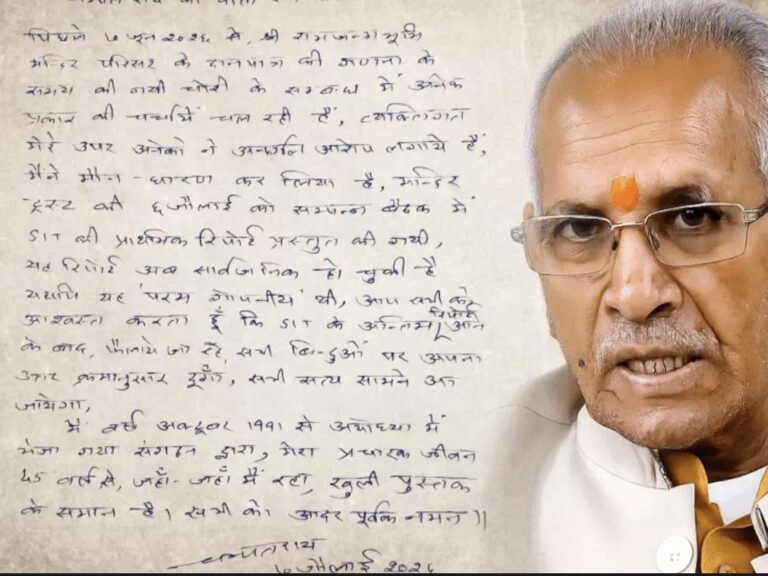 पिछले ७ जून २०२६ से, श्री रामजन्मभूमि
मन्दिर परिसर के दानपात्र की गणना के
समय की गयी चोरी के सम्बन्ध में अनेक
प्रकार की चर्चायें चल रही हैं, व्यक्तिगत
मेरे उपर अनेकों ने अनर्गल आरोप लगाये हैं,
मैंने मौन-धारण कर लिया है, मन्दिर
ट्रस्ट की ६ जौलाई को सम्पन्न बैठक में
SIT की प्राथमिक रिपोर्ट प्रस्तुत की गयी,
यह रिपोर्ट अब सार्वजनिक हो चुकी है
यद्यपि यह 'परम गोपनीय' थी, आप सभी को
आश्वस्त करता हूँ कि SIT के अन्तिम रिपोर्ट आने
के बाद, फैलाये जा रहे, सभी बिन्दुओं पर अपना
उत्तर क्रमानुसार दूँगा, सभी सत्य सामने आ
जायेगा,
मैं वर्ष अक्टूबर 1991 से अयोध्या में
भेजा गया संगठन द्वारा, मेरा प्रचारक जीवन
45 वर्ष से, जहाँ-जहाँ मैं रहा, खुली पुस्तक
के समान है। सभी को आदर पूर्वक नमन॥
चम्पतराय
७ जौलाई २०२६